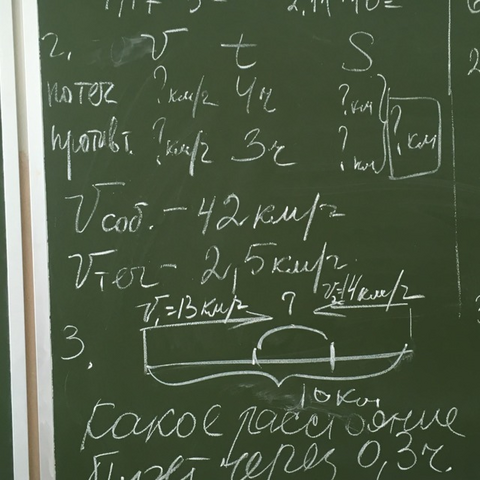 2. v t S
по теч ? км/ч 4ч ? км
против т. ? км/ч 3ч ? км ? км
Vсоб. - 42 км/ч
Vтеч - 2,5 км/ч
V₁=13 км/ч ? V₂=14 км/ч
3.
10 км
Какое расстояние
будет через 0,3ч.